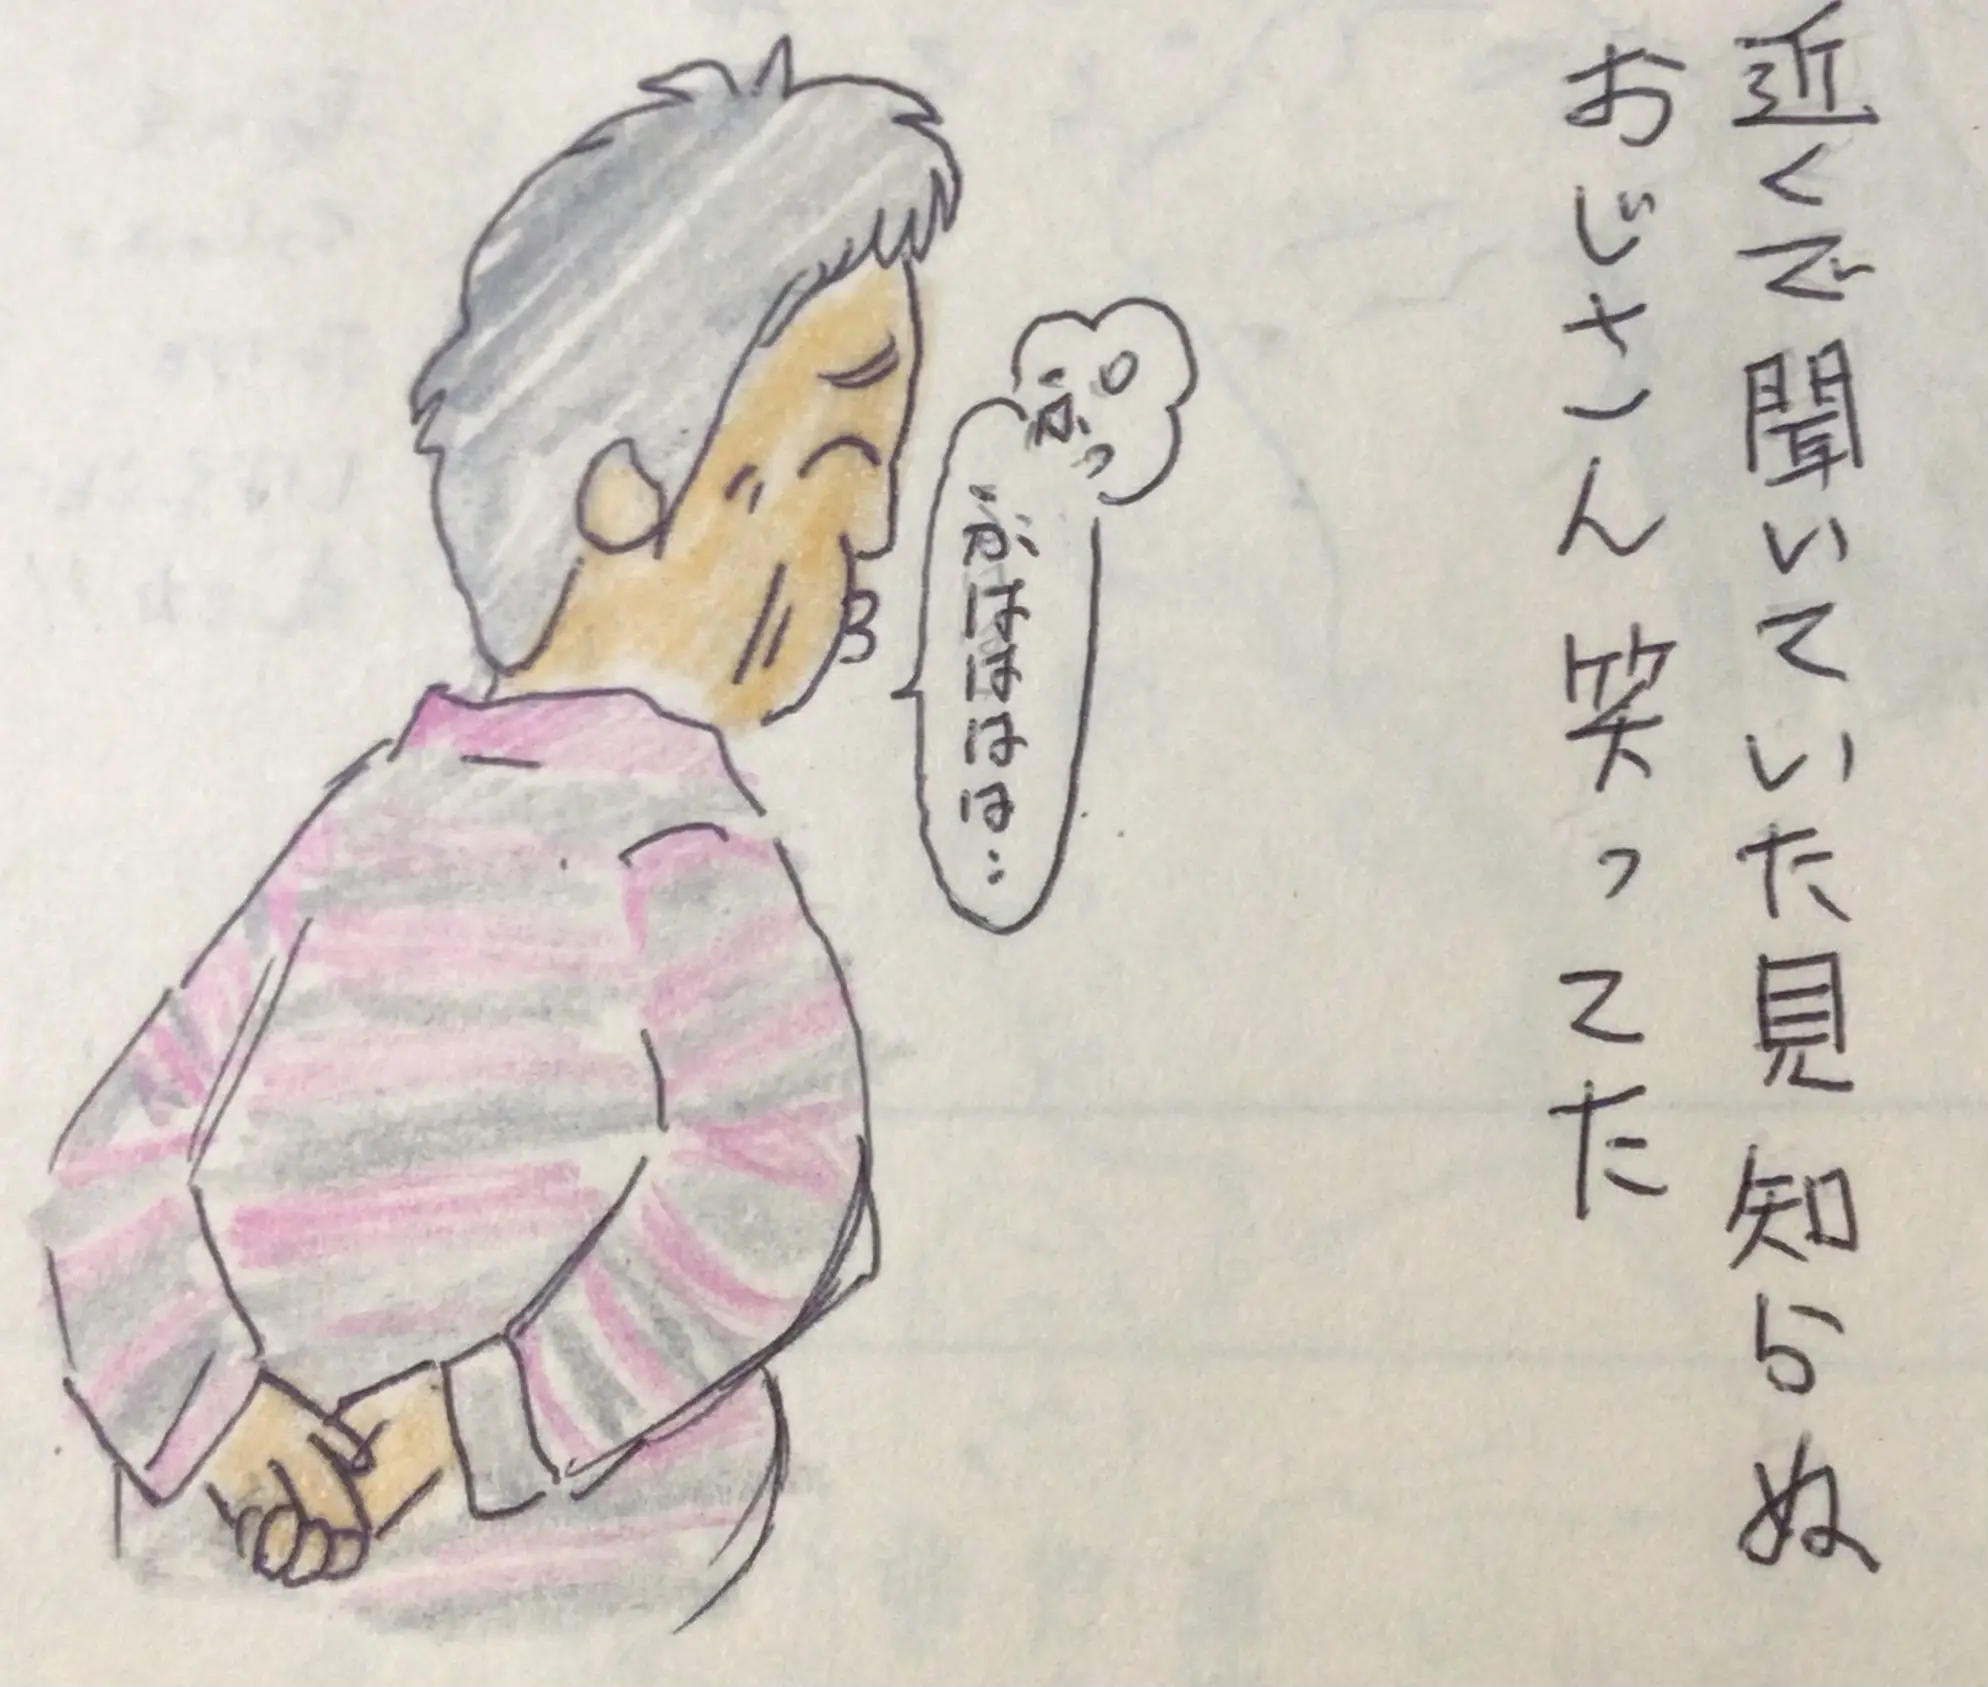 近くで聞いていた見知らぬ
おじさん笑ってた
がはははは…